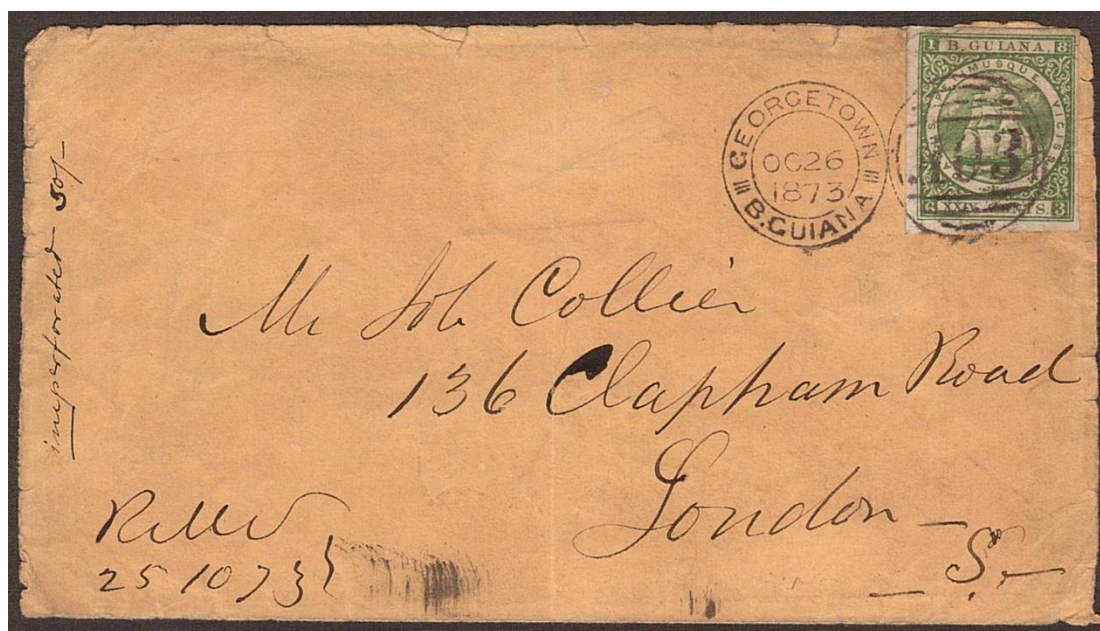 1 B. GUIANA. 8
DAMUS PETIMUSQUE VICISSIM
6 XXIV CENTS. 3
GEORGETOWN
OC 26
1873
B. GUIANA
A03
imperforated 50/-
Mr Job Collier
136 Clapham Road
London
S.
25 10 73